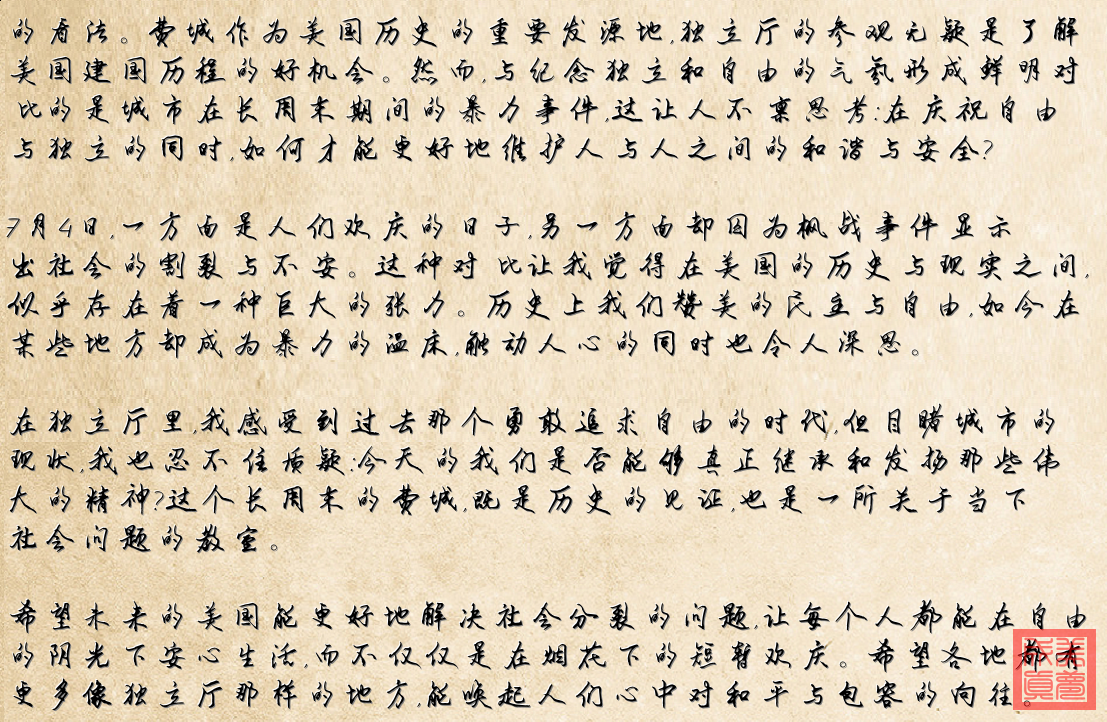 的看法。费城作为美国历史的重要发源地,独立厅的参观无疑是了解
美国建国历程的好机会。然而,与纪念独立和自由的气氛形成鲜明对
比的是城市在长周末期间的暴力事件,这让人不禁思考:在庆祝自由
与独立的同时,如何才能更好地维护人与人之间的和谐与安全?
7月4日,一方面是人们欢庆的日子,另一方面却因为枫战事件显示
出社会的割裂与不安。这种对比让我觉得在美国的历史与现实之间,
似乎存在着一种巨大的张力。历史上我们赞美的民主与自由,如今在
某些地方却成为暴力的温床,触动人心的同时也令人深思。
在独立厅里,我感受到过去那个勇敢追求自由的时代,但目睹城市的
现状,我也忍不住质疑:今天的我们是否能够真正继承和发扬那些伟
大的精神?这个长周末的费城,既是历史的见证,也是一所关于当下
社会问题的教室。
希望未来的美国能更好地解决社会分裂的问题,让每个人都能在自由
的阴光下安心生活,而不仅仅是在烟花下的短暂欢庆。希望各地都有
更多像独立厅那样的地方,能唤起人们心中对和平与包容的向往。